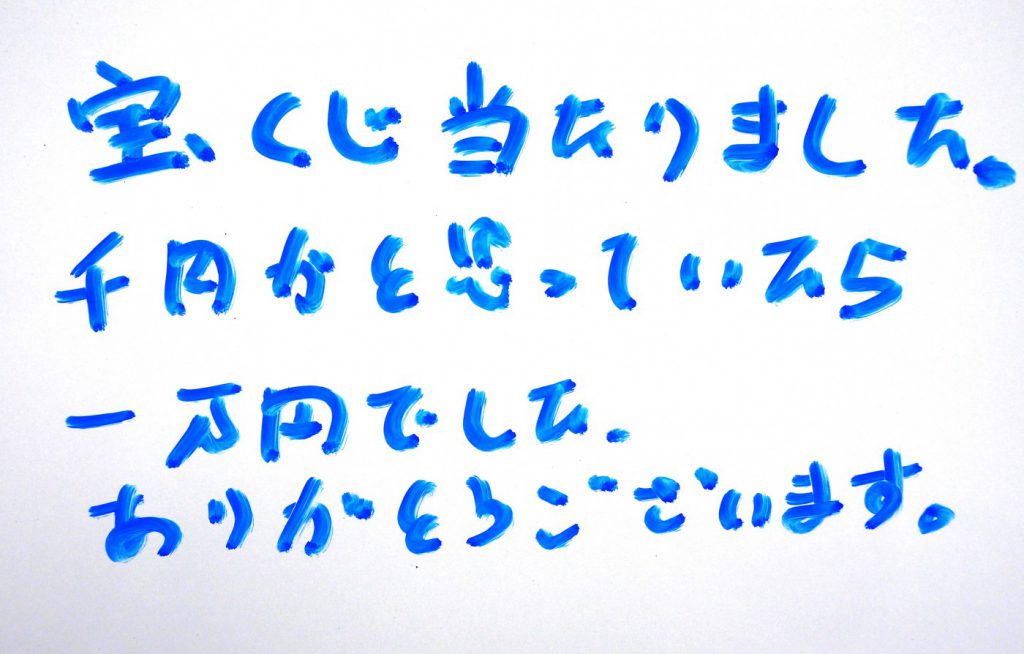 宝くじ当たりました。
千円かと思っていたら
一万円でした。
ありがとうございます。